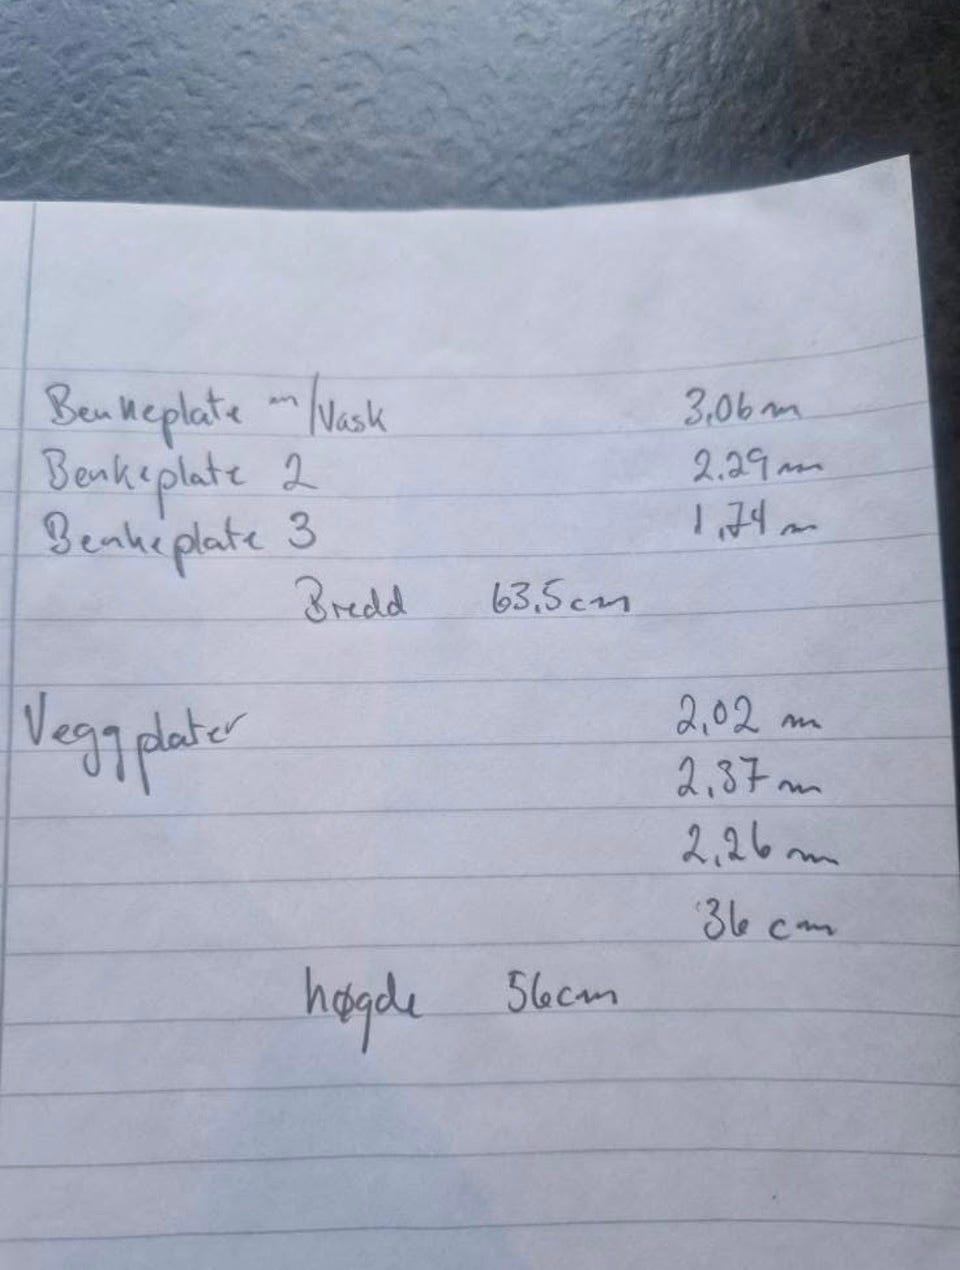 Benkeplate m/Vask 3,06 m
Benkeplate 2 2,29 m
Benkeplate 3 1,74 m
Bredd 63,5 cm
Veggplater 2,02 m
2,37 m
2,26 m
36 cm
høgde 56 cm